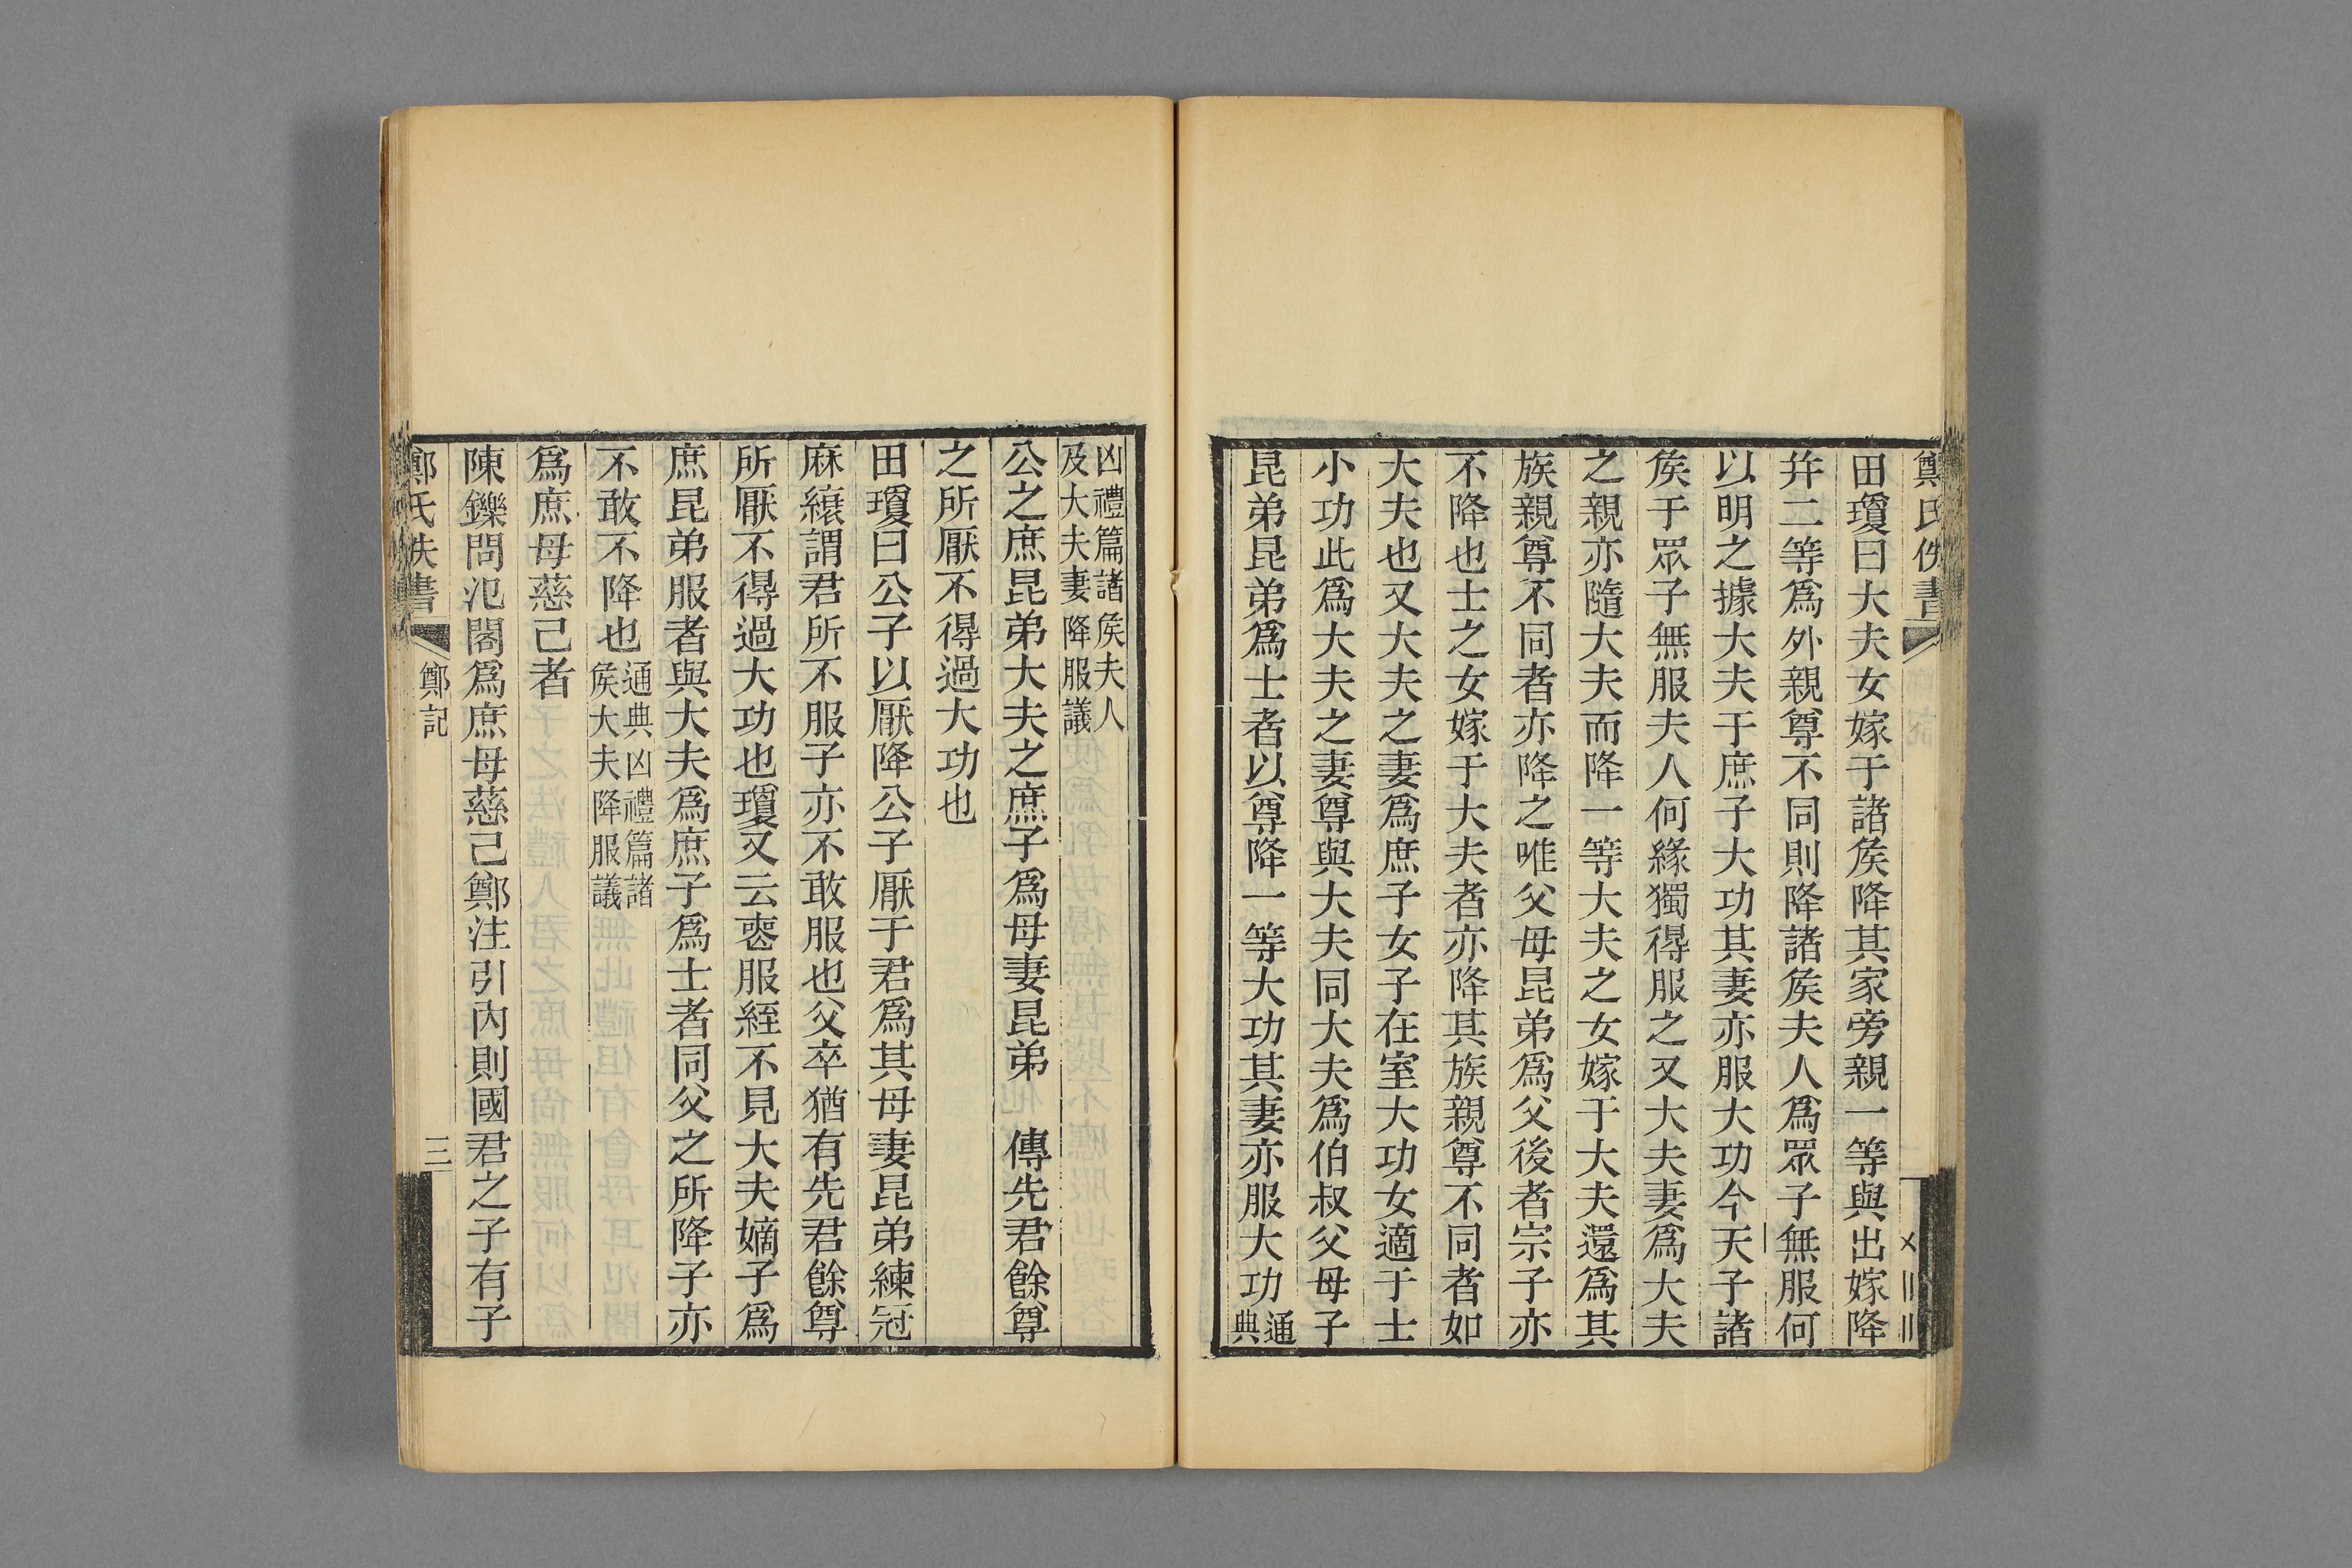 鄭氏佚書
田瓊曰大夫女嫁于諸矦降其家旁親一等與出嫁降
幷二等爲外親尊不同則降諸矦夫人爲眾子無服何
以明之據大夫于庶子大功其妻亦服大功今天子諸
矦于眾子無服夫人何緣獨得服之又大夫妻爲大夫
之親亦隨大夫而降一等大夫之女嫁于大夫還爲其
族親尊不同者亦降之唯父母昆弟爲父後者宗子亦
不降也士之女嫁于大夫者亦降其族親尊不同者如
大夫也又大夫之妻爲庶子女子在室大功女適于士
小功此爲大夫之妻尊與大夫同大夫爲伯叔父母子
昆弟昆弟爲士者以尊降一等大功其妻亦服大功通
典
凶禮篇諸矦夫人
及大夫妻降服議
公之庶昆弟大夫之庶子爲母妻昆弟　傳先君餘尊
之所厭不得過大功也
田瓊曰公子以厭降公子厭于君爲其母妻昆弟練冠
麻縗謂君所不服子亦不敢服也父卒猶有先君餘尊
所厭不得過大功也瓊又云喪服絰不見大夫嫡子爲
庶昆弟服者與大夫爲庶子爲士者同父之所降子亦
不敢不降也通典凶禮篇諸
矦大夫降服議
爲庶母慈己者
陳鑠問氾閣爲庶母慈己鄭注引內則國君之子有子
鄭氏佚書
鄭記
三